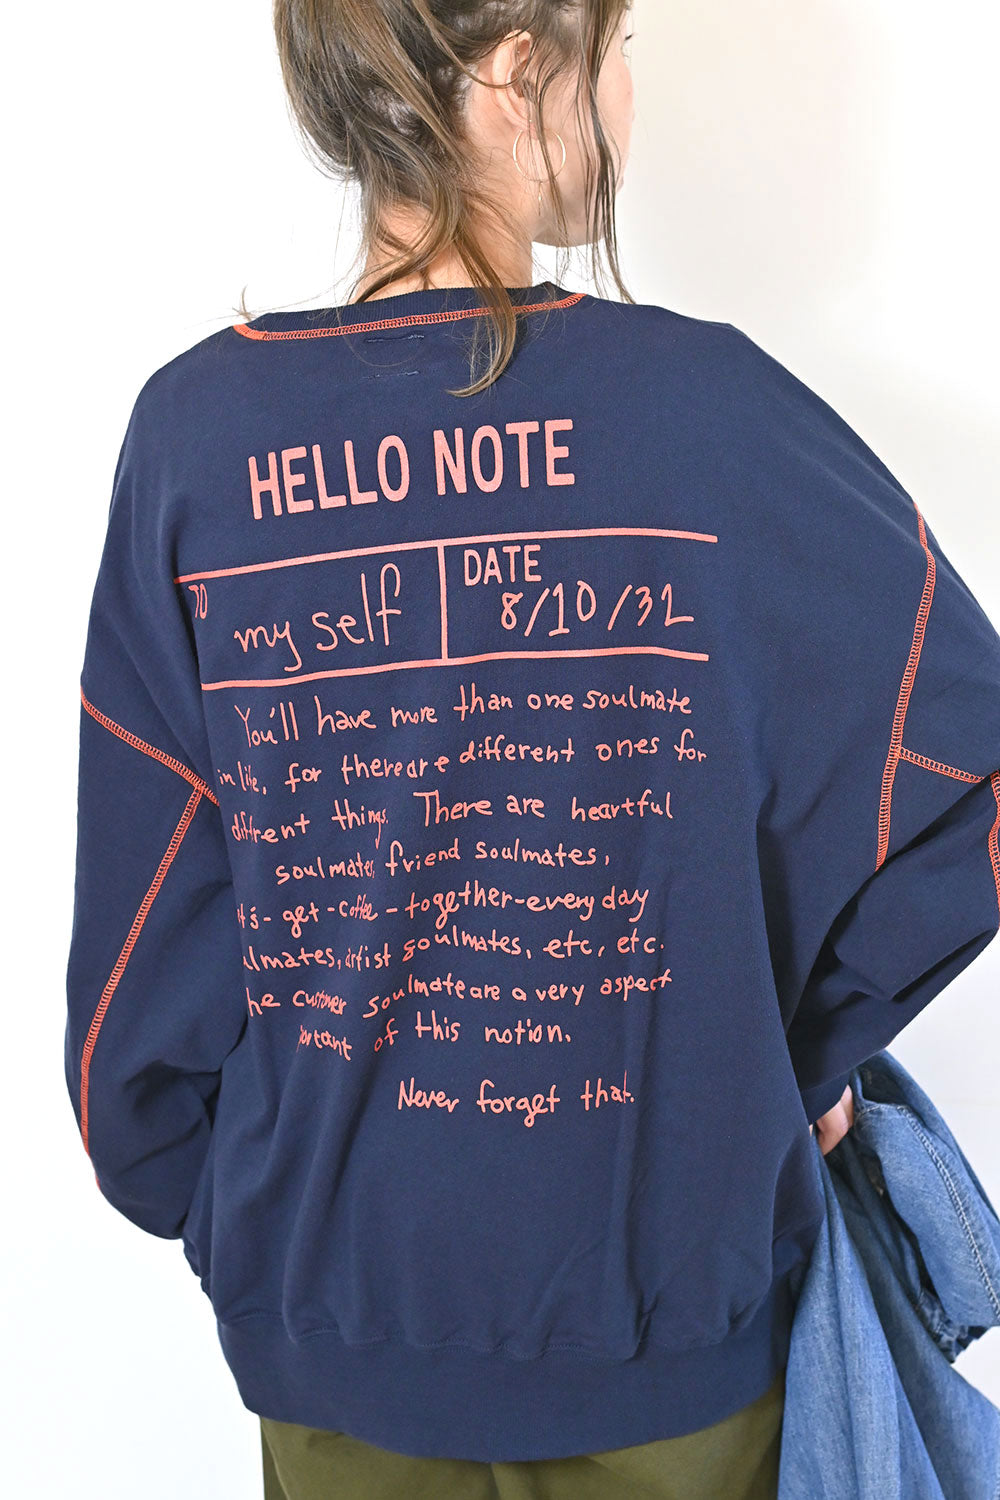 HELLO NOTE
TO my self DATE 8/10/31
You'll have more than one soulmate
in life, for there are different ones for
different things. There are heartful
soulmates, friend soulmates,
t's-get-coffee-together-everyday
lmates, artist soulmates, etc, etc.
he customer soulmate are a very aspect
portant of this notion.
Never forget that.